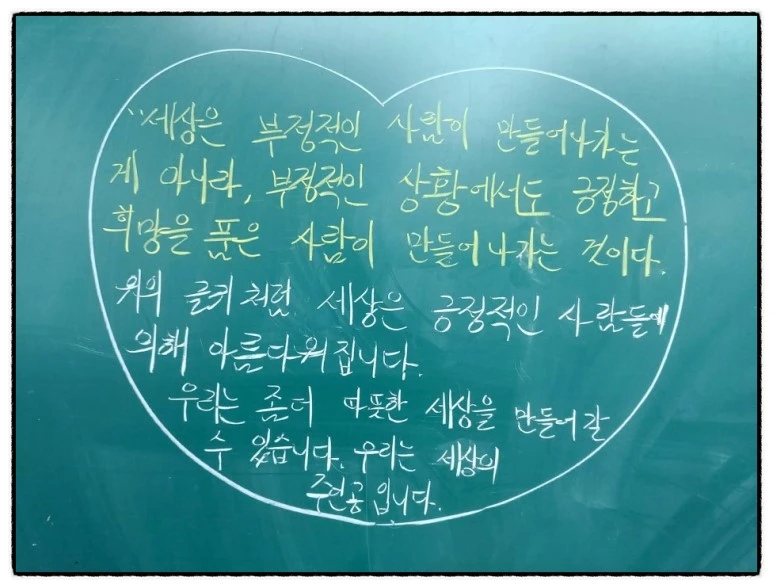 "세상은 부정적인 사람이 만들어나가는
게 아니라, 부정적인 상황에서도 긍정하고
희망을 품은 사람이 만들어나가는 것이다.
위의 글귀처럼 세상은 긍정적인 사람들에
의해 아름다워집니다.
우리는 좀더 따뜻한 세상을 만들어갈
수 있습니다. 우리는 세상의
주인공입니다.